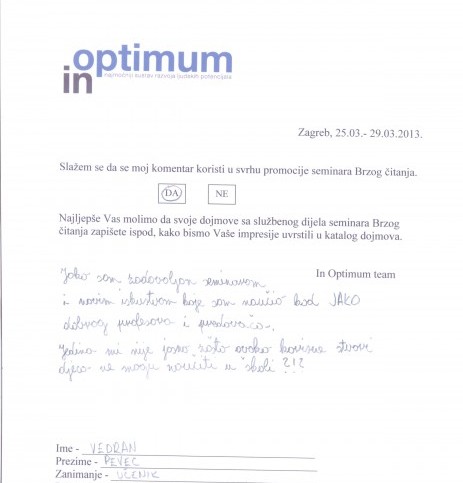 in optimum
najmoćniji sustav razvoja ljudskih potencijala
Zagreb, 25.03.- 29.03.2013.
Slažem se da se moj komentar koristi u svrhu promocije seminara Brzog čitanja.
DA NE
Najljepše Vas molimo da svoje dojmove sa službenog dijela seminara Brzog
čitanja zapišete ispod, kako bismo Vaše impresije uvrstili u katalog dojmova.
In Optimum team
Jako sam zadovoljan seminarom
i novim iskustvom koje sam naučio kod JAKO
dobrog profesora i predavača.
Jedino mi nije jasno zašto ovako korisne stvari
djeca ne mogu naučiti u školi ?!?
Ime - VEDRAN
Prezime - PEVEC
Zanimanje - UČENIK